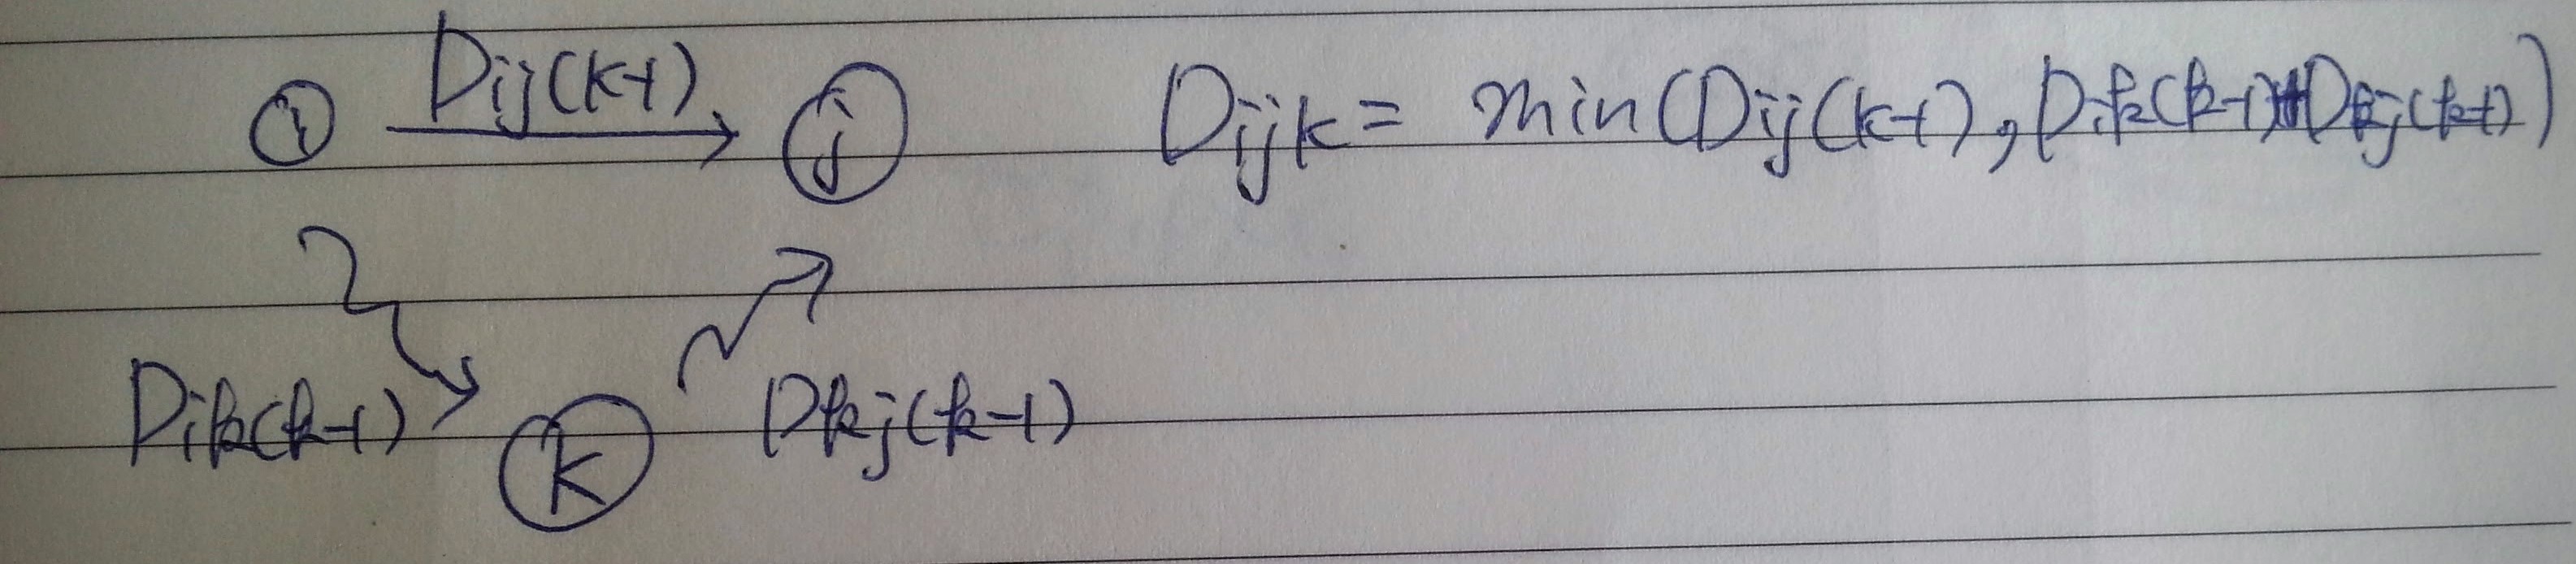 i Dij(k-1) j Dijk = min(Dij(k-1), Dik(k-1)+Dkj(k-1))
Dik(k-1) k Dkj(k-1)